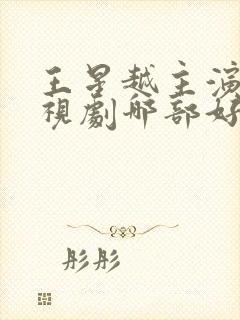 王星越主演
視劇哪部好
彤彤